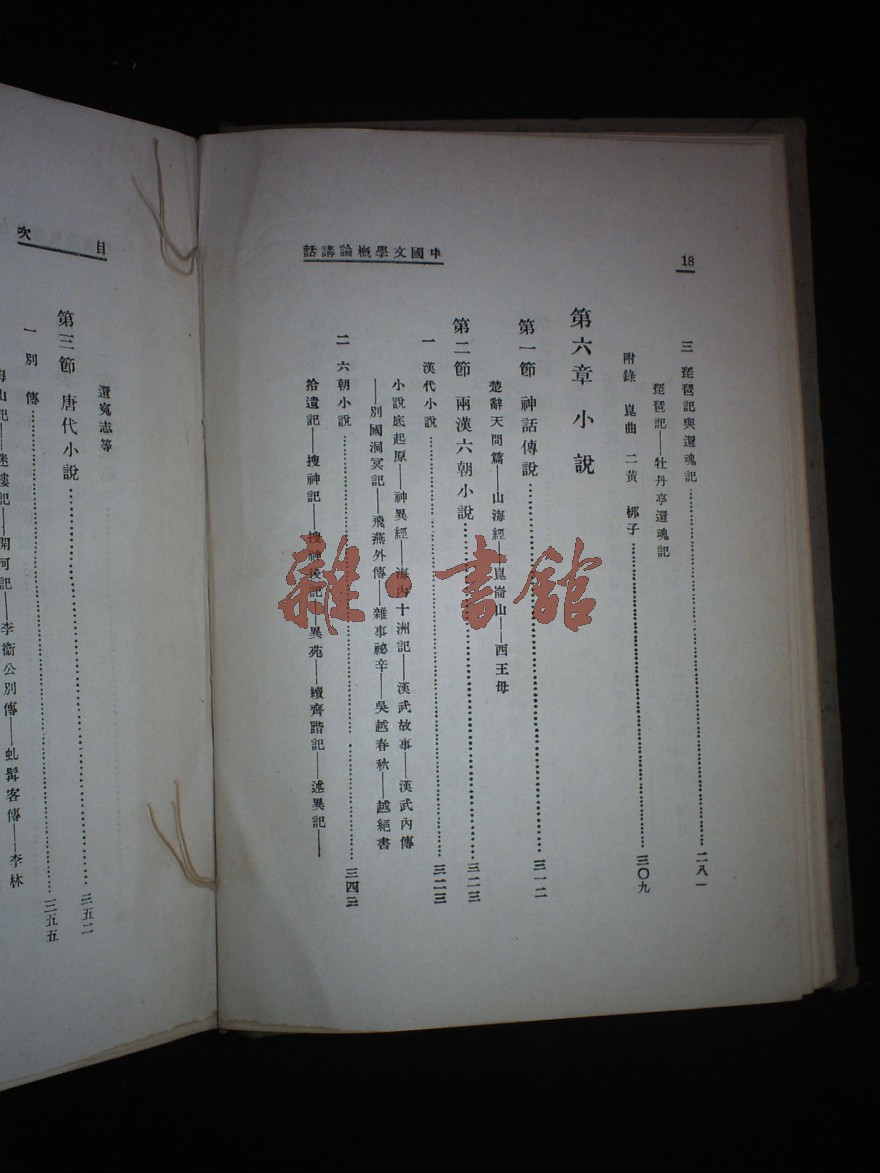 18
中國文學概論講話
三 琵琶記與還魂記……二八一
琵琶記——牡丹亭還魂記
附錄 崑曲 二黃 梆子……三〇九
第六章 小說
第一節 神話傳說……三一二
楚辭天問篇——山海經——崑崙山——西王母
第二節 兩漢六朝小說……三二三
一 漢代小說……三二三
小說底起原——神異經——海內十洲記——漢武故事——漢武內傳
——別國洞冥記——飛燕外傳——雜事祕辛——吳越春秋——越絕書
二 六朝小說……三四三
拾遺記——搜神記——搜神後記——異苑——續齊諧記——述異記——
目次
還寃志等
第三節 唐代小說……三五二
一 別傳……三五五
海山記——迷樓記——開河記——李衞公別傳——虬髯客傳——李林
雜·書館